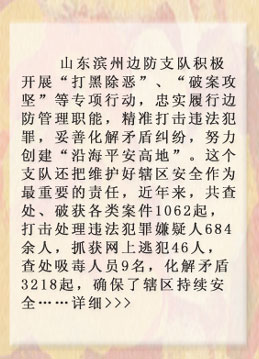 山东滨州边防支队积极
开展“打黑除恶”、“破案攻
坚”等专项行动，忠实履行边
防管理职能，精准打击违法犯
罪，妥善化解矛盾纠纷，努力
创建“沿海平安高地”。这个
支队还把维护好辖区安全作为
最重要的责任，近年来，共查
处、破获各类案件1062起，
打击处理违法犯罪嫌疑人684
余人，抓获网上逃犯46人，
查处吸毒人员9名，化解矛盾
3218起，确保了辖区持续安
全……详细>>>